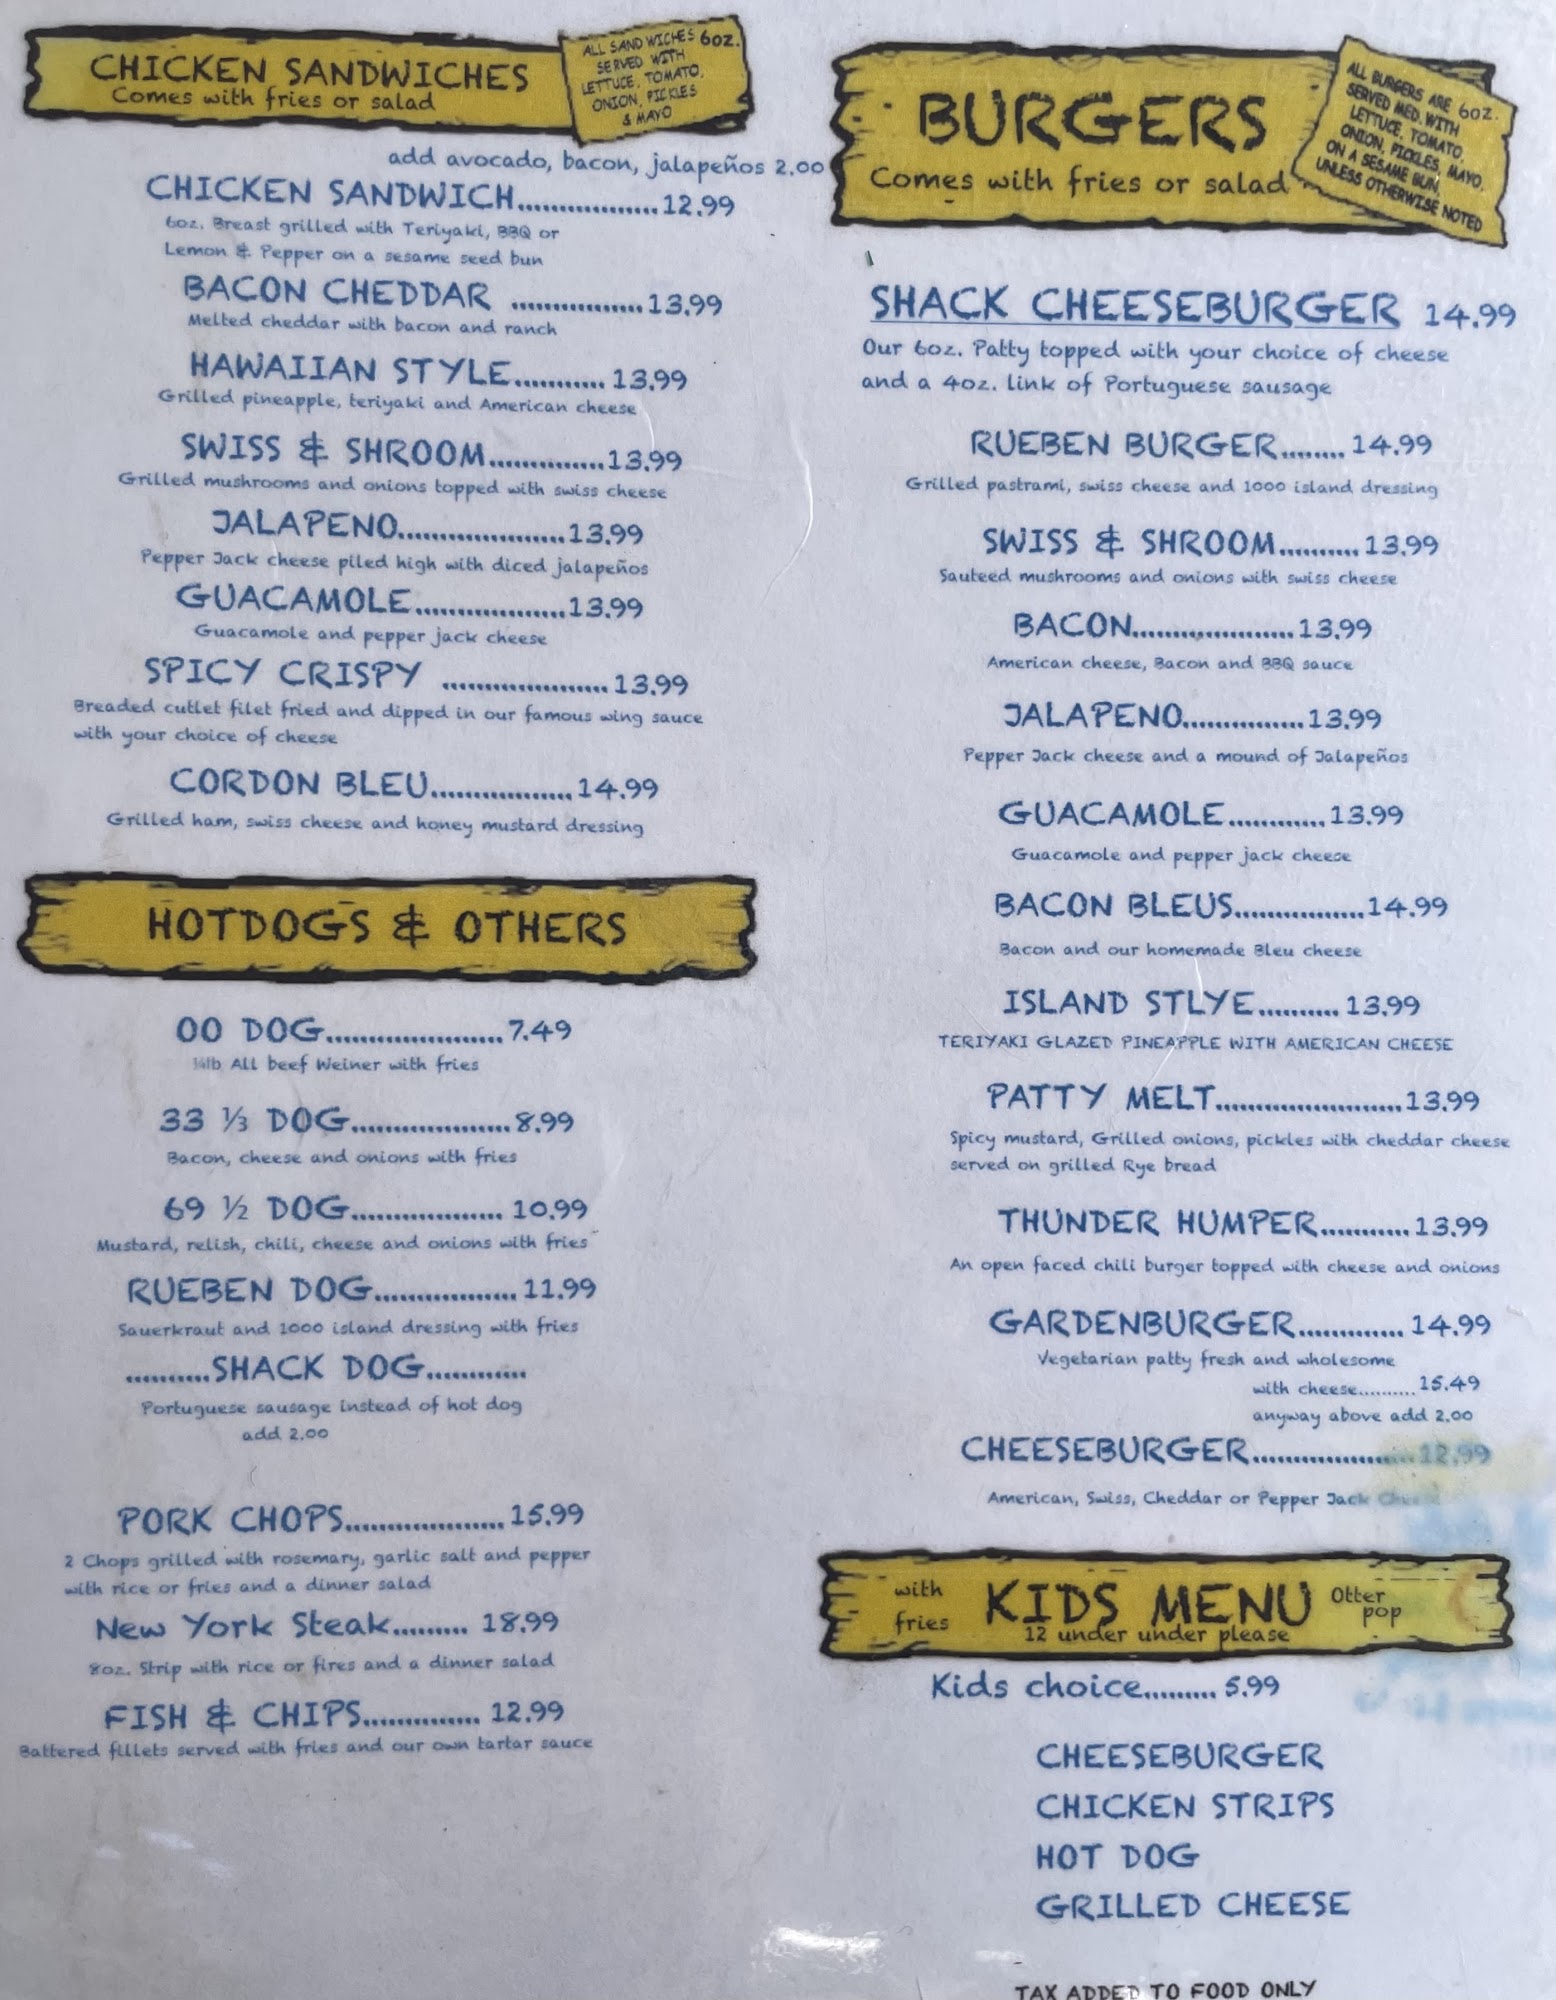 CHICKEN SANDWICHES
Comes with fries or salad
ALL SANDWICHES 6oz.
SERVED WITH
LETTUCE, TOMATO,
ONION, PICKLES
& MAYO
add avocado, bacon, jalapeños 2.00
CHICKEN SANDWICH.................12.99
6oz. Breast grilled with Teriyaki, BBQ or
Lemon & Pepper on a sesame seed bun
BACON CHEDDAR ................13.99
Melted cheddar with bacon and ranch
HAWAIIAN STYLE........... 13.99
Grilled pineapple, teriyaki and American cheese
SWISS & SHROOM..............13.99
Grilled mushrooms and onions topped with swiss cheese
JALAPENO....................13.99
Pepper Jack cheese piled high with diced jalapeños
GUACAMOLE..................13.99
Guacamole and pepper jack cheese
SPICY CRISPY ....................13.99
Breaded cutlet filet fried and dipped in our famous wing sauce
with your choice of cheese
CORDON BLEU.................14.99
Grilled ham, swiss cheese and honey mustard dressing
HOTDOGS & OTHERS
OO DOG.....................7.49
¼lb All beef Weiner with fries
33 ⅓ DOG...................8.99
Bacon, cheese and onions with fries
69 ½ DOG.................. 10.99
Mustard, relish, chili, cheese and onions with fries
RUEBEN DOG................. 11.99
Sauerkraut and 1000 island dressing with fries
..........SHACK DOG............
Portuguese sausage instead of hot dog
add 2.00
PORK CHOPS................... 15.99
2 Chops grilled with rosemary, garlic salt and pepper
with rice or fries and a dinner salad
New York Steak......... 18.99
8oz. Strip with rice or fires and a dinner salad
FISH & CHIPS.............. 12.99
Battered fillets served with fries and our own tartar sauce
BURGERS
Comes with fries or salad
ALL BURGERS ARE 6oz.
SERVED MED. WITH
LETTUCE, TOMATO,
ONION, PICKLES, MAYO,
ON A SESAME BUN,
UNLESS OTHERWISE NOTED
SHACK CHEESEBURGER 14.99
Our 6oz. Patty topped with your choice of cheese
and a 4oz. link of Portuguese sausage
RUEBEN BURGER........ 14.99
Grilled pastrami, swiss cheese and 1000 island dressing
SWISS & SHROOM..........13.99
Sauteed mushrooms and onions with swiss cheese
BACON....................13.99
American cheese, Bacon and BBQ sauce
JALAPENO...............13.99
Pepper Jack cheese and a mound of Jalapeños
GUACAMOLE............13.99
Guacamole and pepper jack cheese
BACON BLEUS................14.99
Bacon and our homemade Bleu cheese
ISLAND STLYE..........13.99
TERIYAKI GLAZED PINEAPPLE WITH AMERICAN CHEESE
PATTY MELT.......................13.99
Spicy mustard, Grilled onions, pickles with cheddar cheese
served on grilled Rye bread
THUNDER HUMPER...........13.99
An open faced chili burger topped with cheese and onions
GARDENBURGER............. 14.99
Vegetarian patty fresh and wholesome
with cheese..........15.49
anyway above add 2.00
CHEESEBURGER....................12.99
American, Swiss, Cheddar or Pepper Jack Cheese
with
fries
KIDS MENU
12 under under please
Otter
pop
Kids choice......... 5.99
CHEESEBURGER
CHICKEN STRIPS
HOT DOG
GRILLED CHEESE
TAX ADDED TO FOOD ONLY